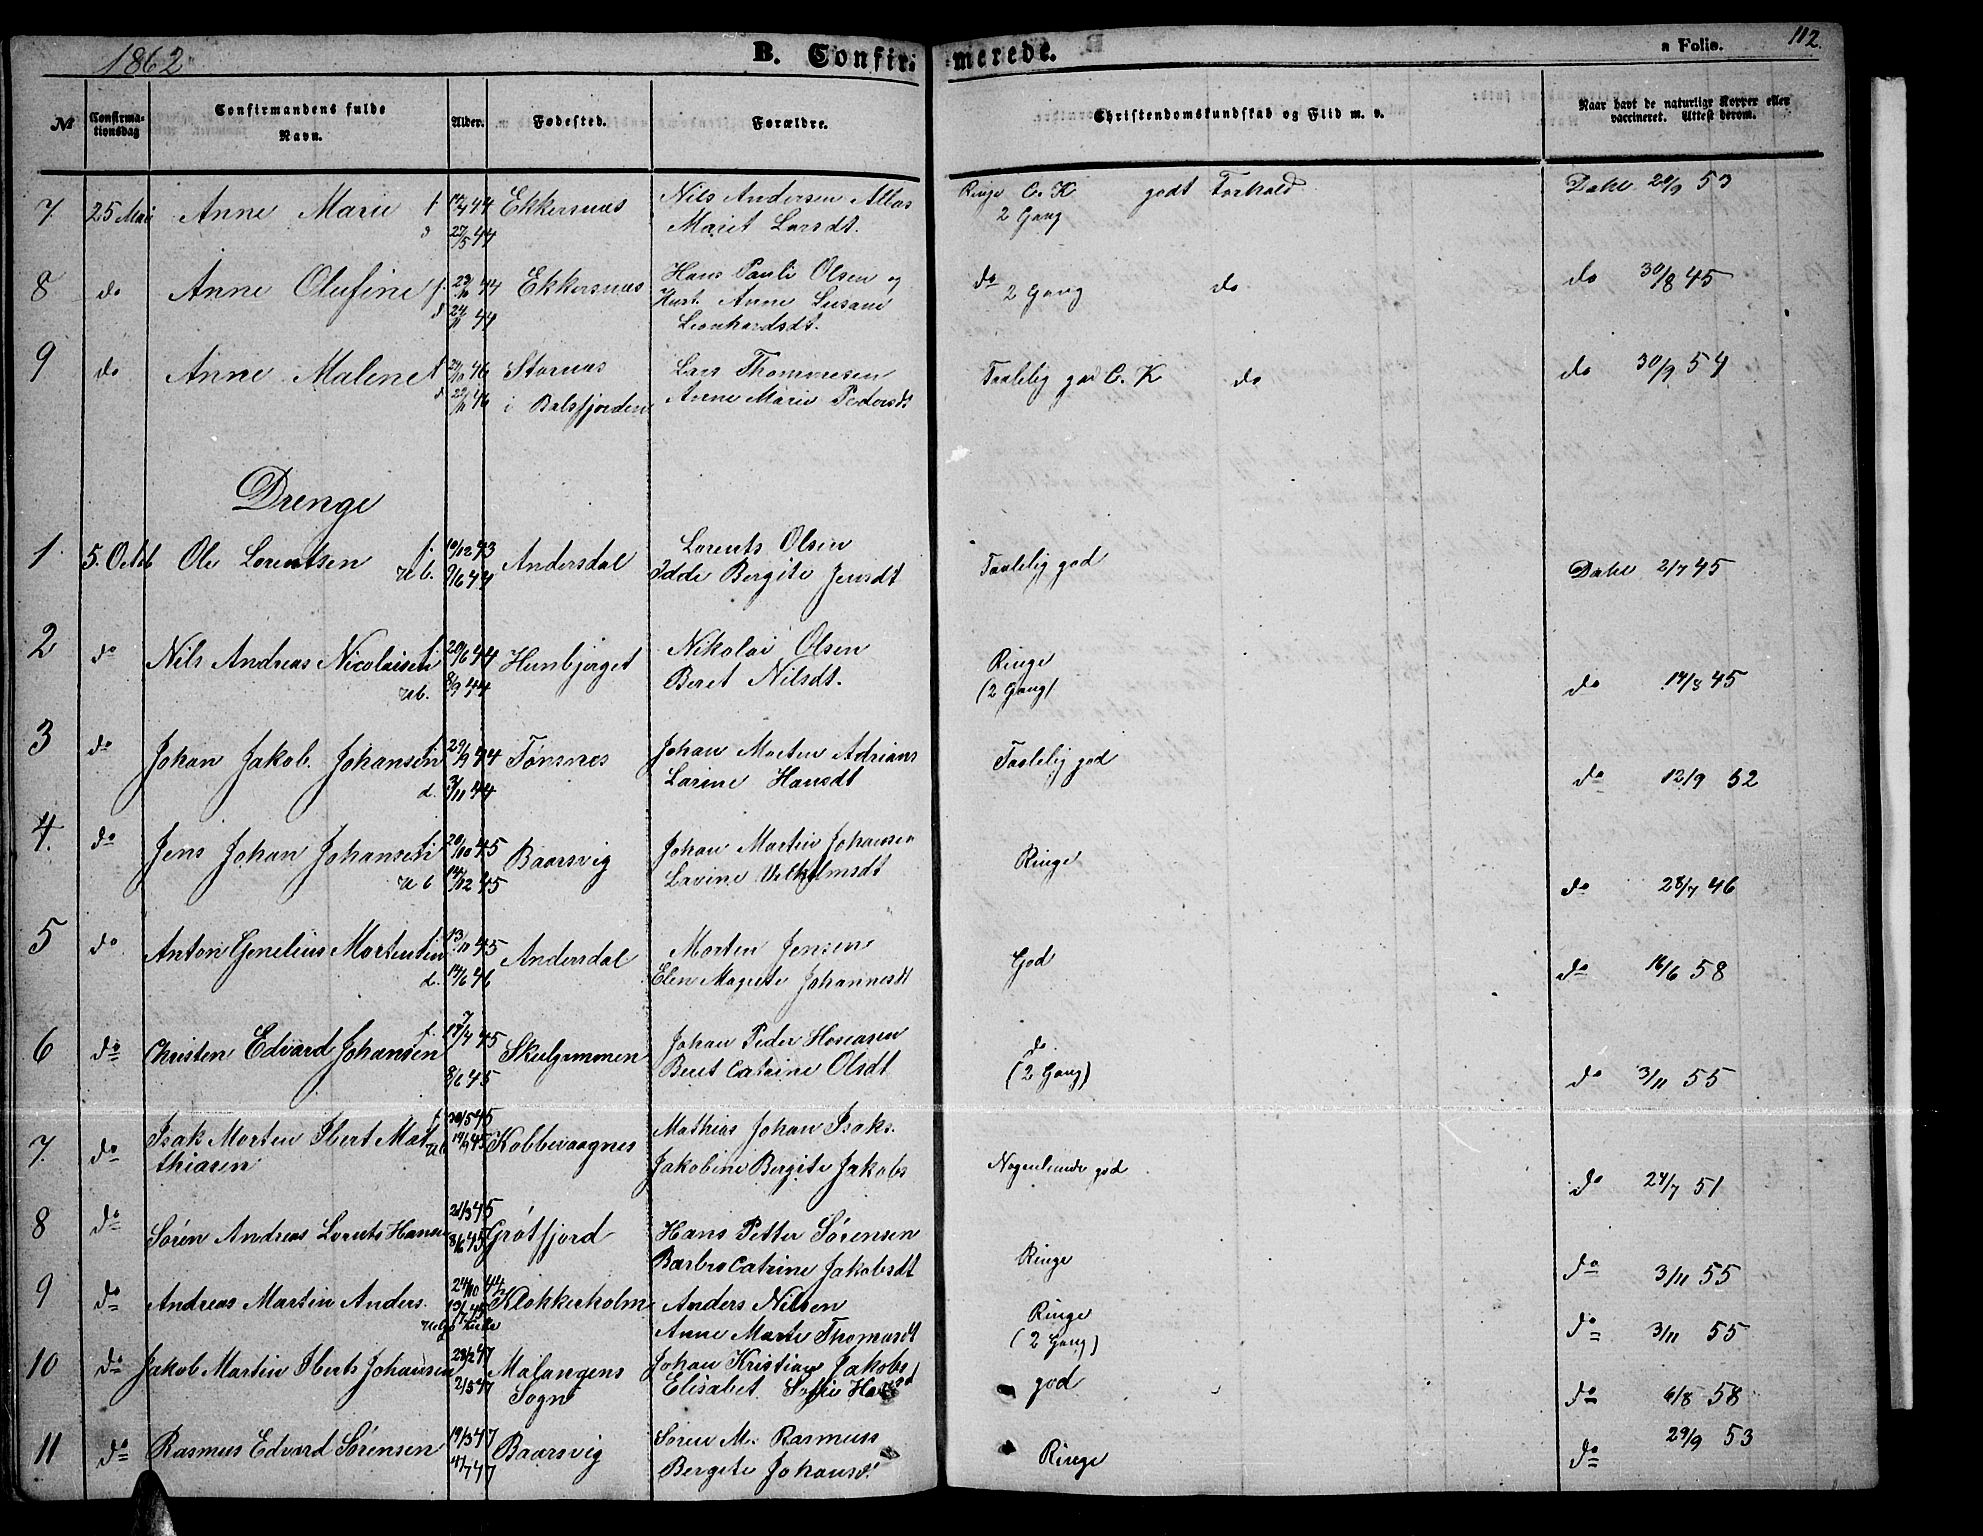 1862
B. Confirmerede.
a Folio. 112.
№ Confirmationsdag Confirmandens fulde Navn. Alder. Fødested. Forældre. Christendomskundskab og Flid m. v. Naar havt de naturlige Kopper eller vaccineret. Attest derom.
7. 25 Mai Anne Marie f 44 Ekkersnæs Nils Andersen Ringe C. K godt Forhold Dahl 20/9 53
d 27/5 44 Marit Larsdt. 2 Gang
8 do Anne Olufine f. 23/10 44 Ekkersnæs Hans Pauli Olsen og do do do 30/8 45
d 24/11 44 Hust. Anne Susane 2 Gang
Leonhardsdt.
9 do Anne Malene f 46 Stornæs Lars Thommesen Taalelig god C. K do do 30/9 54
d 22/11 46 i Balsfjorden Anne Marie Pedersdt
Drenge
1. 5. Octb Ole Lorentsen f. 10/12 43 Andersdal Lorents Olsen Taalelig god Dahl 2/7 45
u b. 9/6 44 Idde Bergite Jensdt
2 do Nils Andreas Nicolaisen f 20/6 44 Hunbjerget Nikolai Olsen Ringe do 14/3 45
ub. 8/9 44 Beret Nilsdt. (2 Gang)
3 do Johan Jakob Johansen f 29/9 44 Tønsnes Johan Morten Adrians Taalelig god do 12/9 52
d. 3/11 44 Larine Hansdt
4. do Jens Johan Johansen f 20/10 45 Baarsvig Johan Martin Johansen Ringe do 28/7 46
u b 14/12 45 Lavine Vilhelmsdt
5 do Anton Mortensen f 13/11 45 Andersdal Morten Jensen God do 16/6 58
d. 14/6 46 Elen Magrete Johannesdt
6 do Christen Edvard Johansen f. 17/4 45 Skulgammen Johan Peder Hoseasen do do 3/11 55
8/6 45 Beret Catrine Olsdt (2 Gang)
7. do Isak Morten Ibert Mathiasen f 30/5 45 Kobbevaagnes Mathias Johan Isaks. Nogenlunde god do 24/7 51
ub 45 Jakobine Bergite Jakobs
8 do Søren Andreas Lorents Hansen 21/3 45 Grøtfjord Hans Petter Sørensen Ringe do 3/11 55
8/6 45 Barbro Catrine Jakobsdt
9 do Andreas Martin Anders. 24/10 44 Klokkerholm Anders Nilsen Ringe do 3/11 55
13/7 45 Anne Marte Thomasdt (2 Gang)
10 do Jakob Martin Iberts Johansen 28/2 47 Malangens Johan Kristian Jakobs god do 6/8 58
2/5 47 Sogn Elisabet Sofie
11 do Rasmus Edvard Sørensen 19/3 47 Baarsvig Søren M. Rasmuss Ringe do 29/9 53
4/7 47 Bergite Johansd.